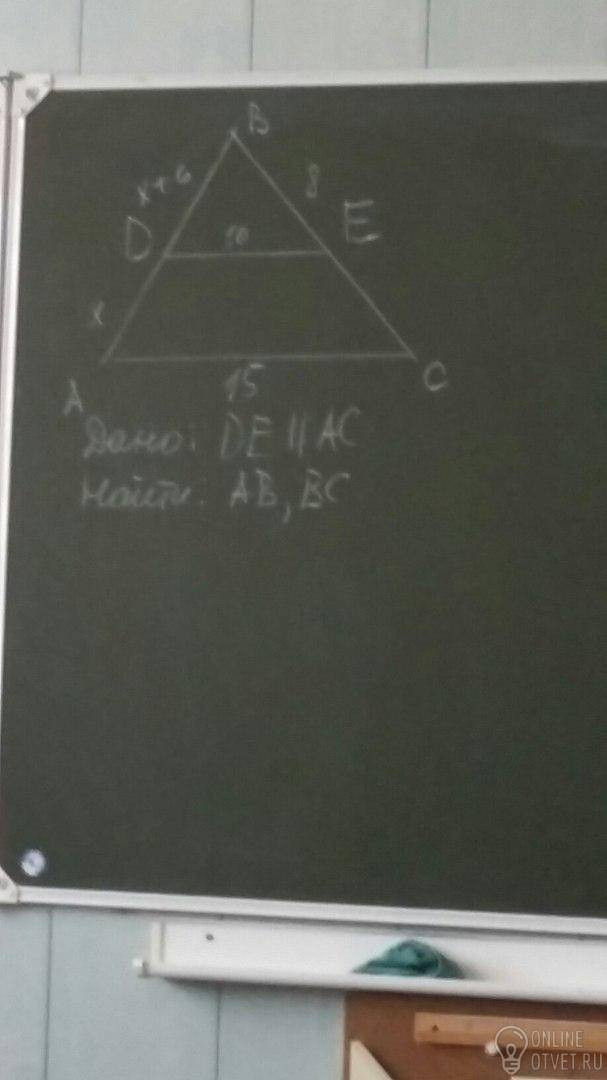 B
x+6
8
D
10
E
x
A
15
C
Дано: DE || AC
Найти: AB, BC
ONLINE
OTVET.RU